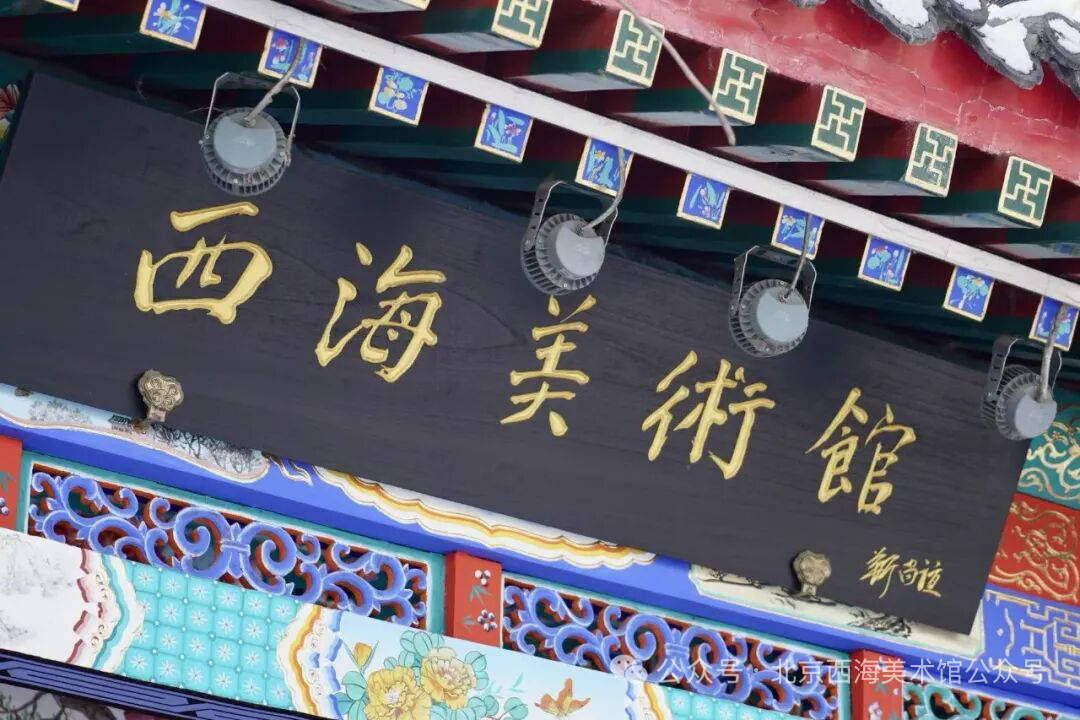 西海美術館
靳尚谊
公众号·北京西海美术馆公众号